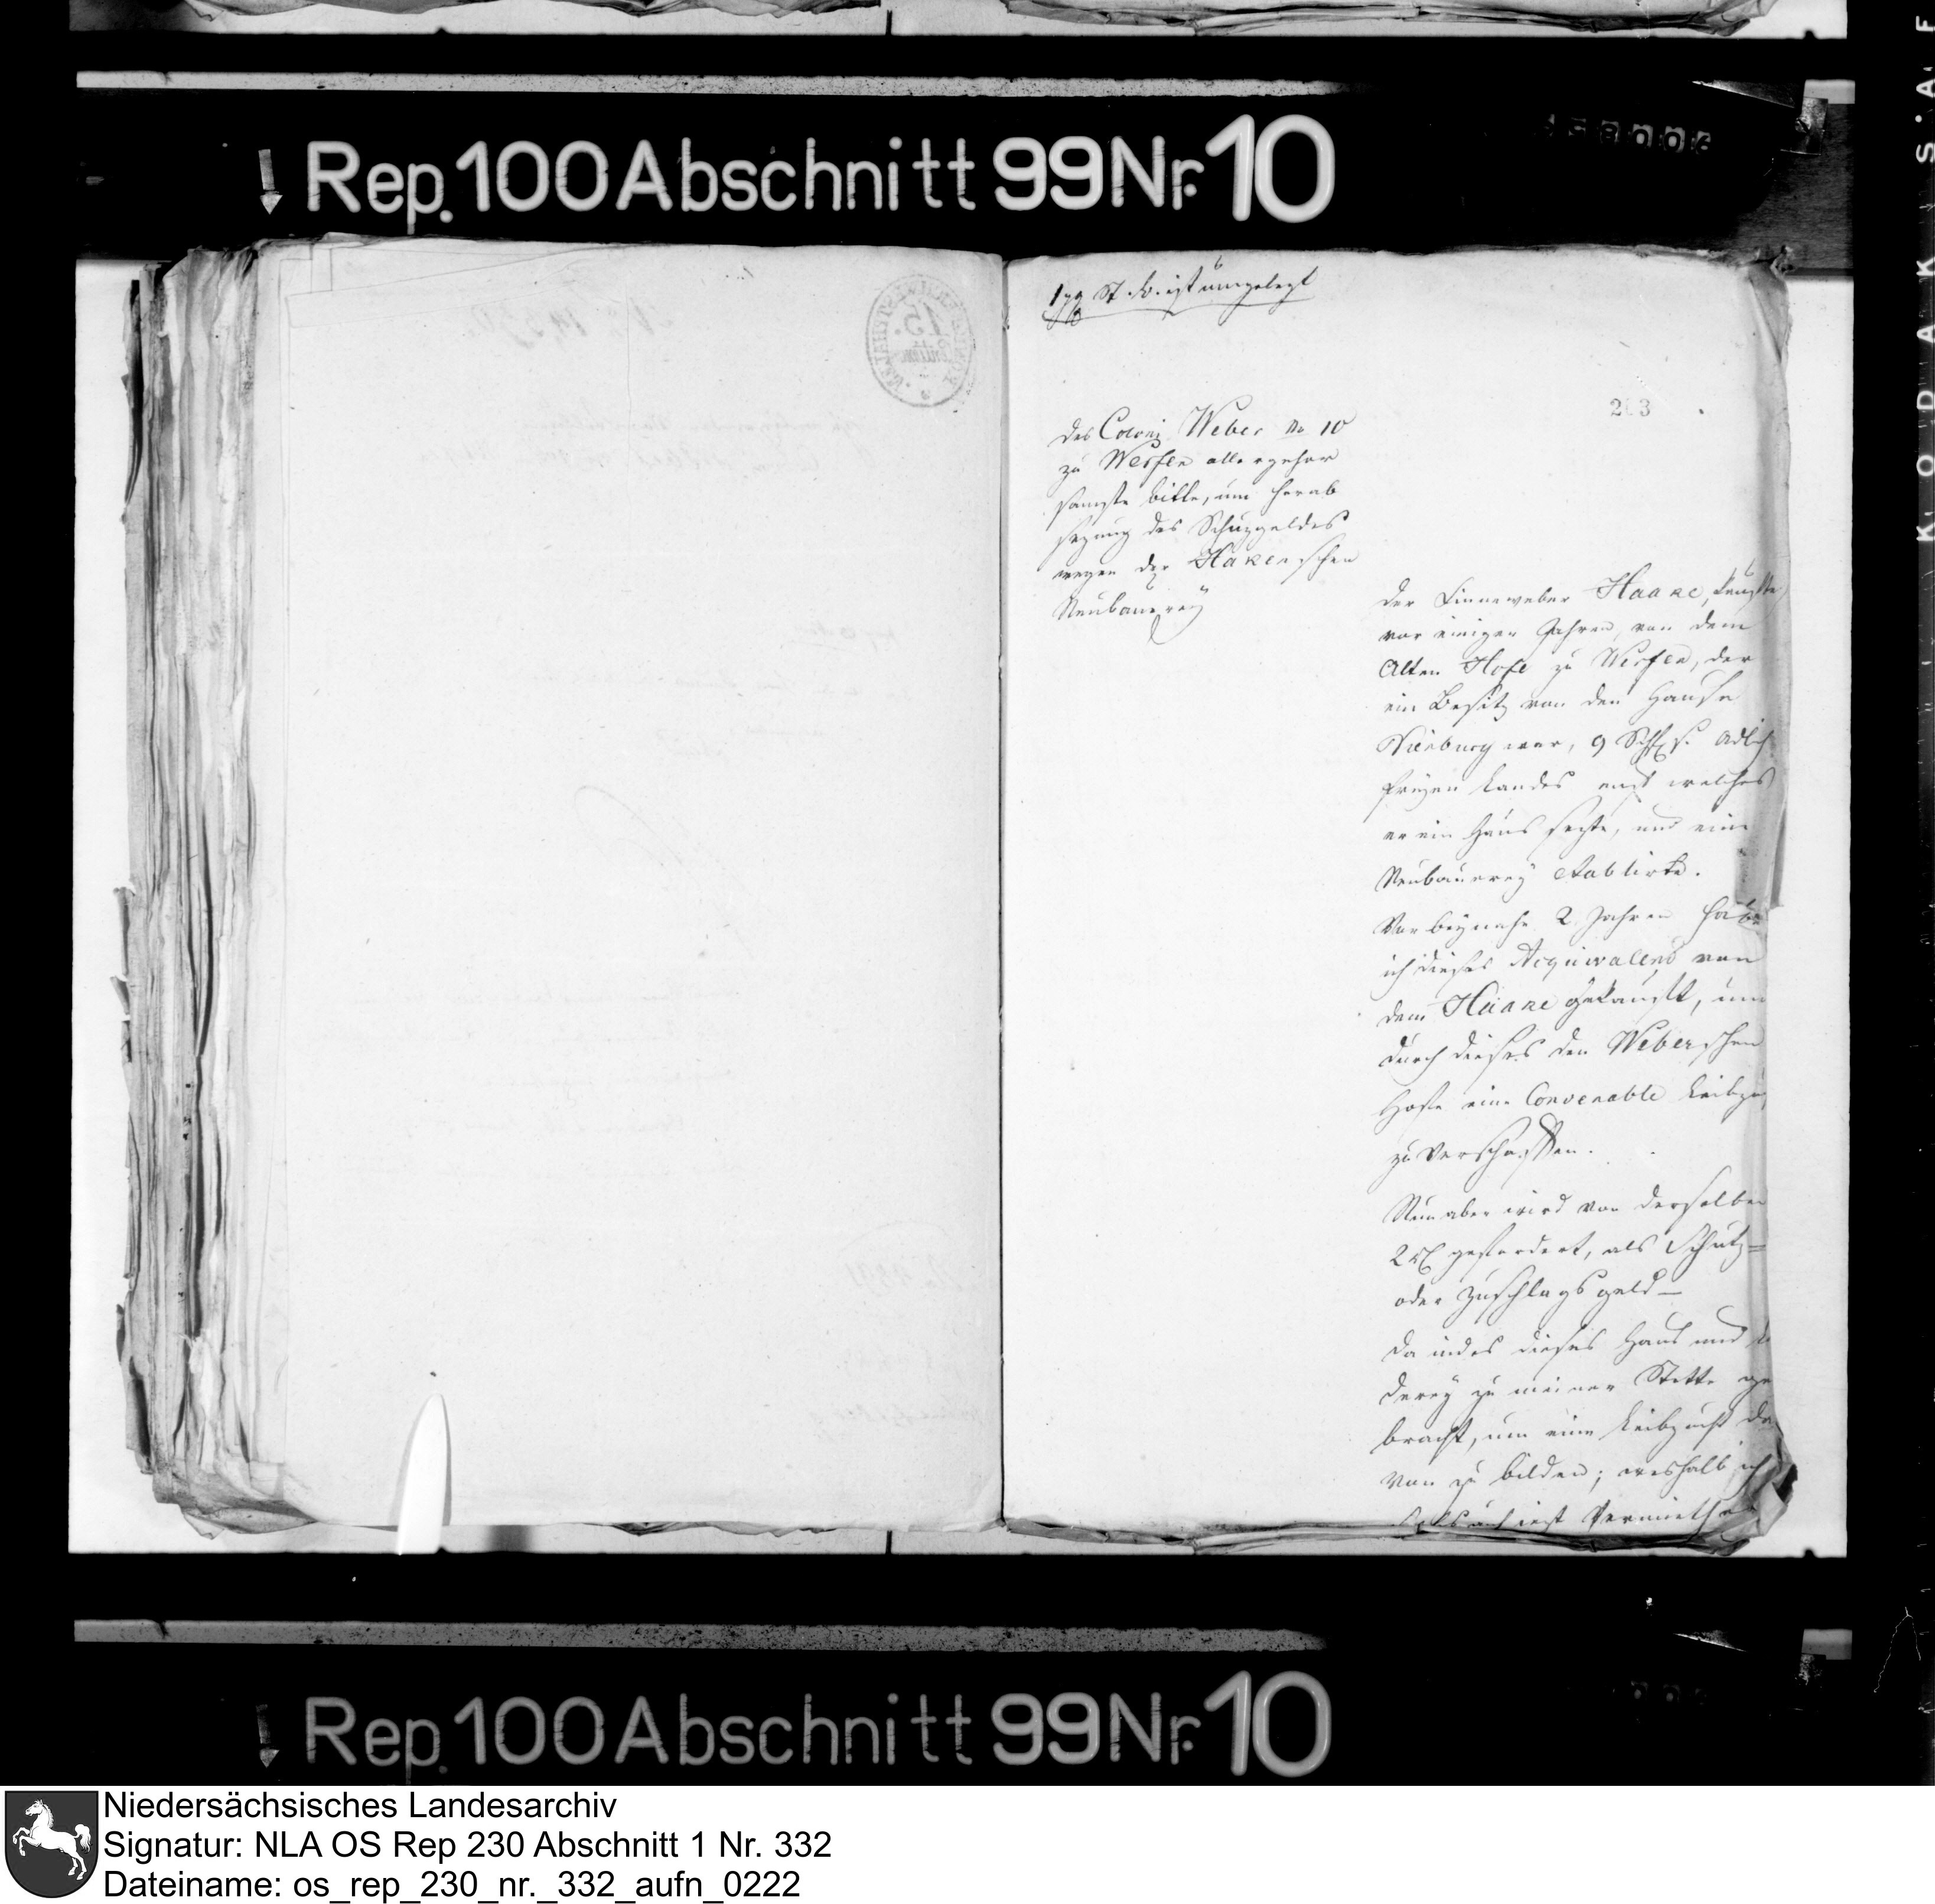 Rep. 100 Abschnitt 99 Nr. 10
203
des Coloni Weber No 10
zu Wersen allergehor
samste bitte, um herab
sezung des Schuzgeldes
wegen der Hakenschen
Neubauerey
der Linneweber Haake, kaufte
vor einigen Jahren, von dem
Alten Hofe zu Wersen, der
ein Besitz von den Hause
war, 9 Schfs. Adlich
freyen Landes auf welches
er ein Haus sezte, und eine
Neubauerey etablirte.
Vor beynahe 2 Jahren habe
ich dieses Aequivalend von
dem Haake gekauft, um
durch dieses den Weberschen
Hofe eine Convenable Leibzu
zu verschaffen.
Nun aber wird von derselben
2 rt gefordert, als Schutz=
oder Zuschlagsgeld —
da indes dieses Haus und
derey zu meiner Stette ge
bracht, um eine Leibzucht da
von zu bilden; weshalb ich
Rep. 100 Abschnitt 99 Nr. 10
KODAK SAF
Niedersächsisches Landesarchiv
Signatur: NLA OS Rep 230 Abschnitt 1 Nr. 332
Dateiname: os_rep_230_nr._332_aufn_0222